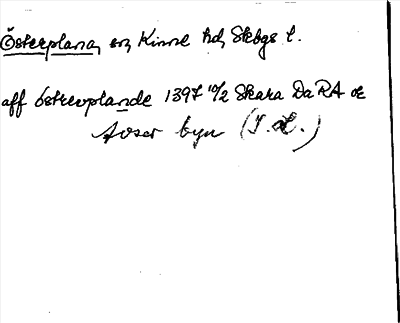 Österplana, sn, Kinne hd, Skbgs l.
aff óstrevplande 1397 10/2 Skara DaRA or
avser byn (I. L.)